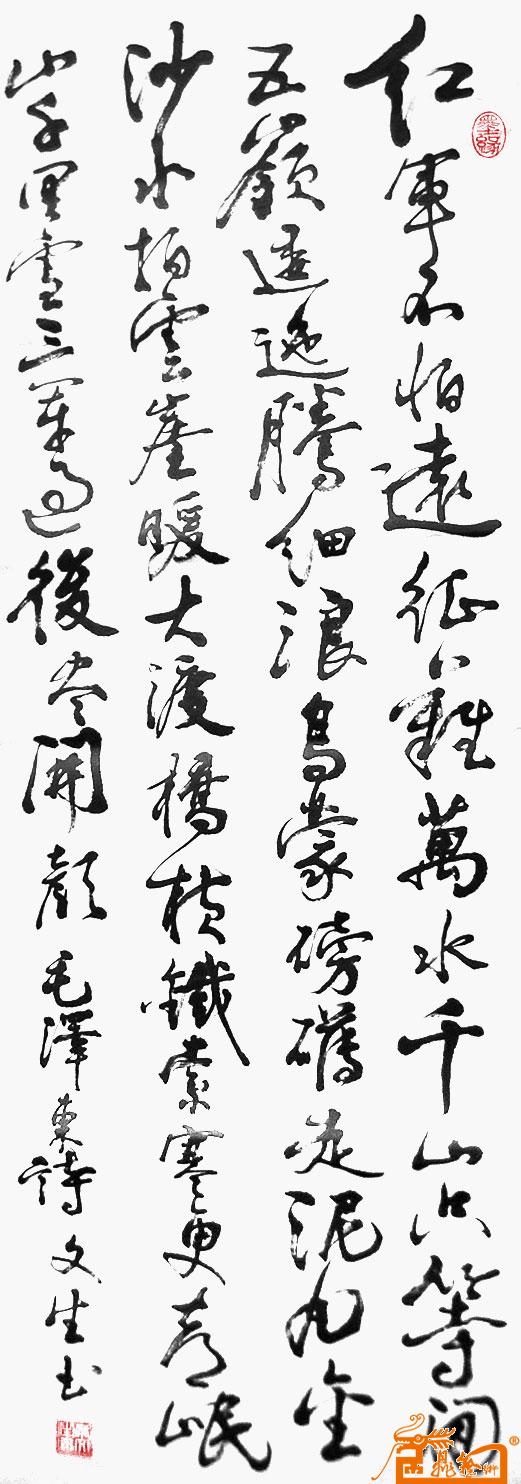 红軍不怕遠征難萬水千山只等閒
五嶺逶迤騰細浪烏蒙磅礴走泥丸金
沙水拍雲崖暖大渡橋横鐵索寒更喜岷
山千里雪三軍過後尽開顏毛澤東詩文生书